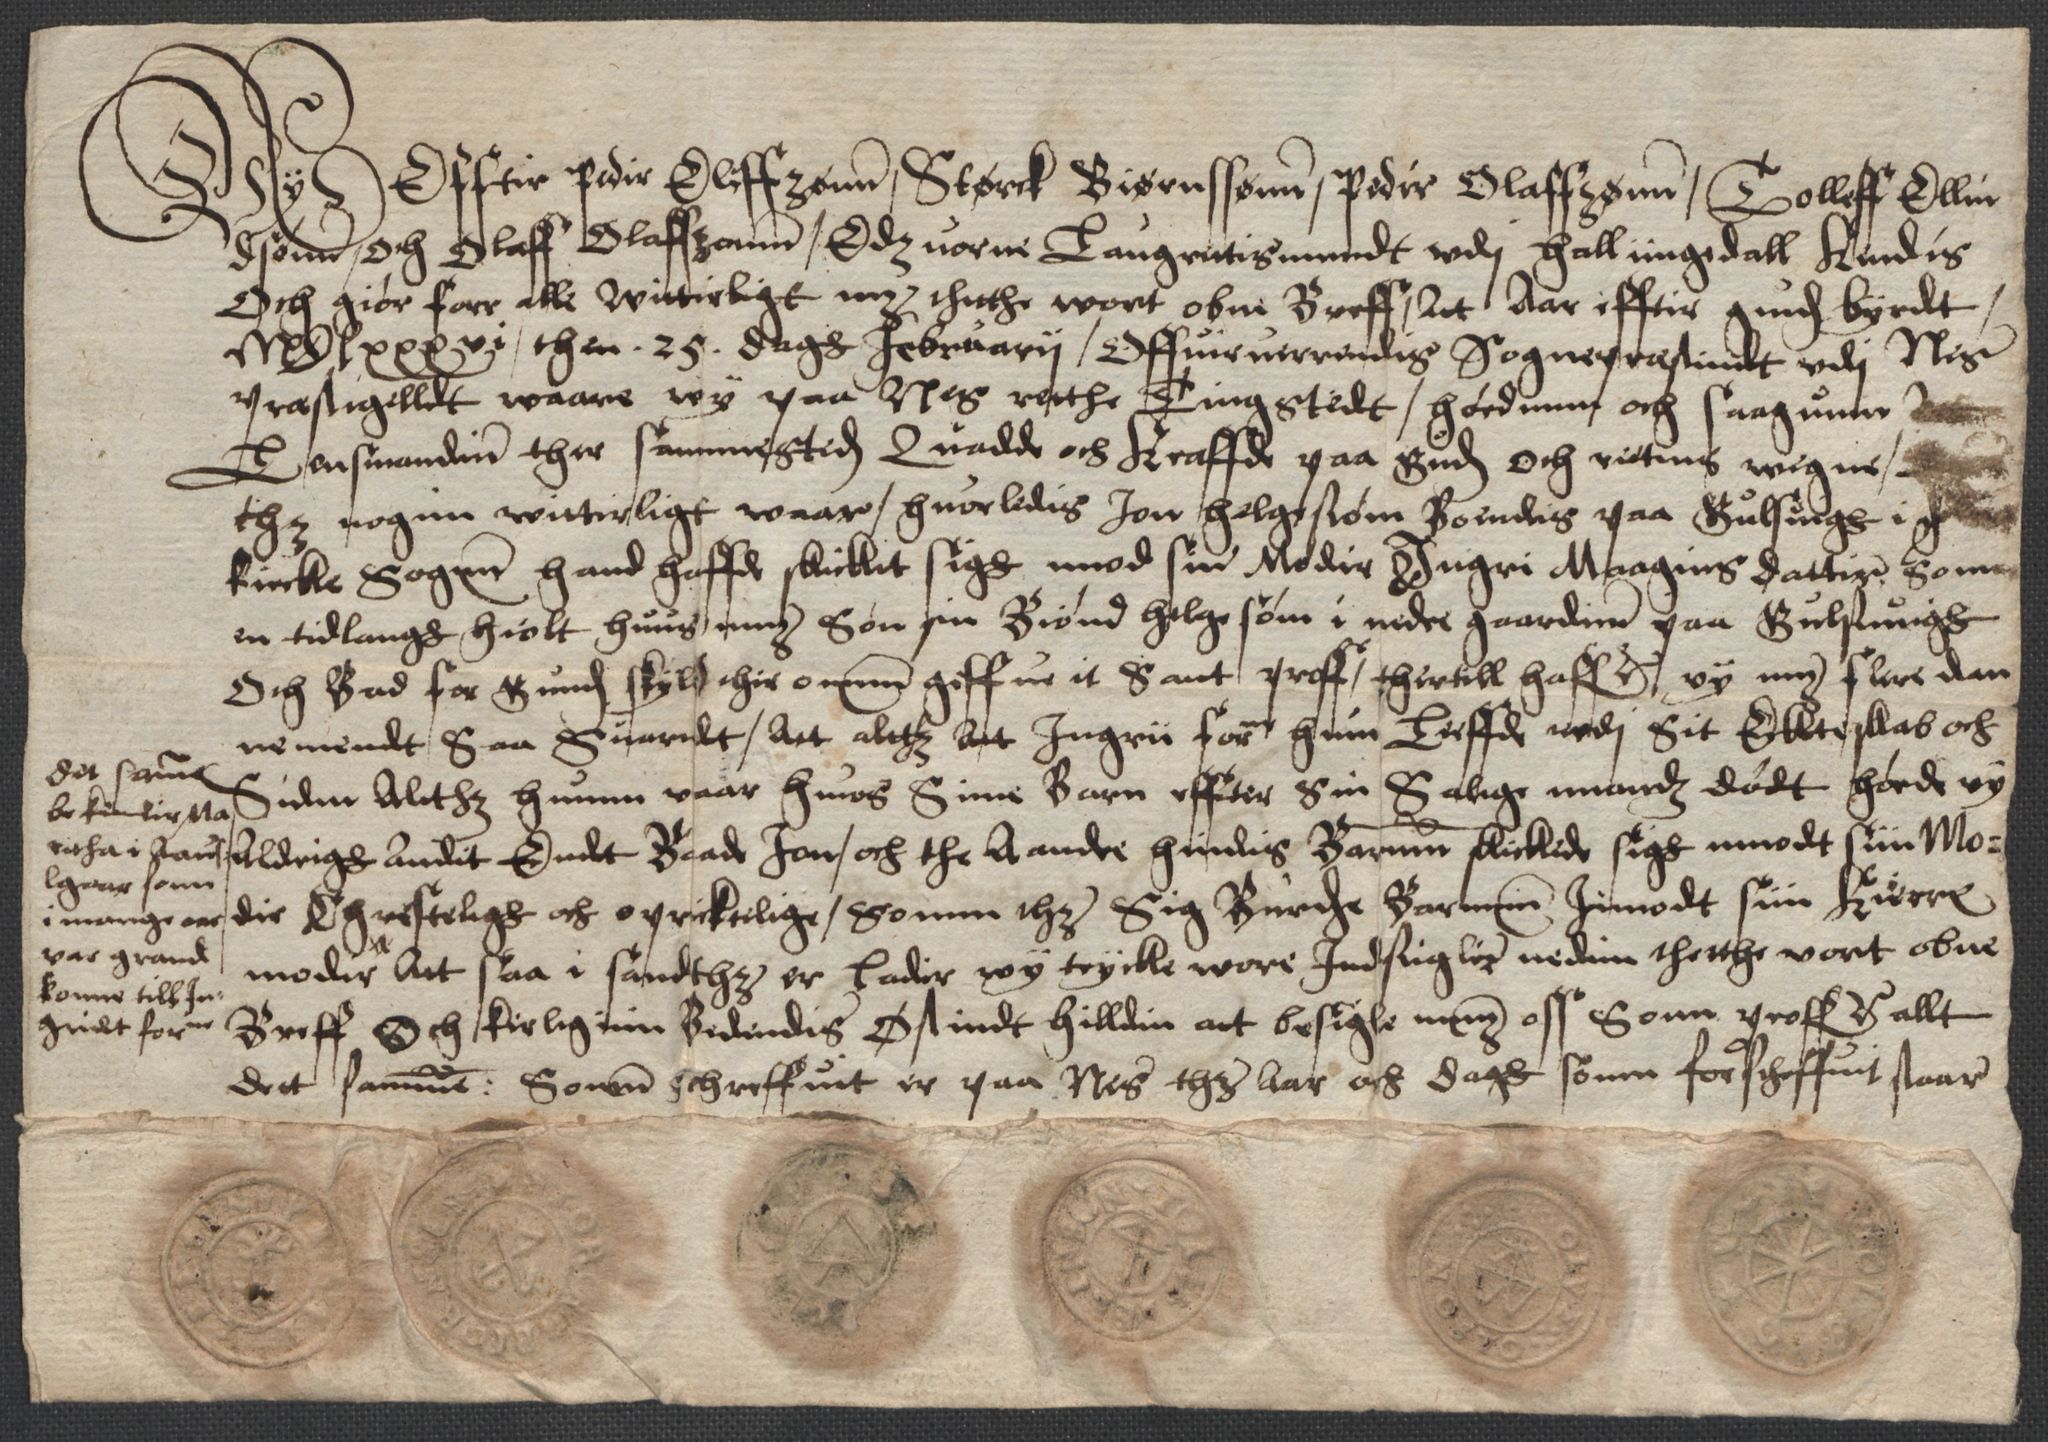 Wy Effter Peder Oleffzønn / Størck Biørnssønn / Peder Olaffzønn / Tolleff Ellin
dsønn / Och Olaff Olaffzønn / Edzuorne Laugrettismendt vdj Hallingedall Kendis
Och giør forr alle witterligt mz thette wort obne Breff / At Aar effter gudz byrdt /
MDlxxxvi / then . 25 . dagh Februarij / Offuerverrendis Sogneprestindt vdj Nes
prestigelldt waare wy paa Nes rette Tingstedt / hørdum och saagum
Lensmandin ther sammestedz Quadde och Kraffde paa Gudz och rettins wegne /
thz nogin witterligt waar / huorledis Jon Helgesøn Boendes paa Gulsuigh i
kirckle Sogenn hand haffde skicket sigh mod sin Moder Jngri Maagins dattir Som
en tidlangh hiolt huus mz Søn sin Biønd Helgesøn i nedre gaardinn paa Gulsuigh
Och Bad for Gudz skyld ther omm geffue it Sant proff / thertill haffr wy mz flere dan
nemendt Saa Suaredt / Att altthz Att Ingrii forne hun Leffde vdj Sit Ecktteskab och
Siden Altthz hunn vaar huos Sine Barn effter Sin Salige mandz dødt hørde vy
Aldrigh Andit Endt Baade Jon / och the Aandre hindis Barnn skickede sigh modt siin Mo=
dir Christeligh och oprichtelige / Somm thz Sig Burde Barnenn Jmodt siin Kierre
modir At saa i sandthz er Lader wy trycke wore Indsigler neden thette vort obne
Breff Och kierliginn Bedendis Østindt Hilldin att besigle mz oss Som proffr allt
dett samme : Somm schreffuit er paa Nes thz Aar och dagh somm forscreffuit staar
det samme
bekender Ma
retha i
lgaar som
i mange aar
var grand
konne till In-
gridt forne